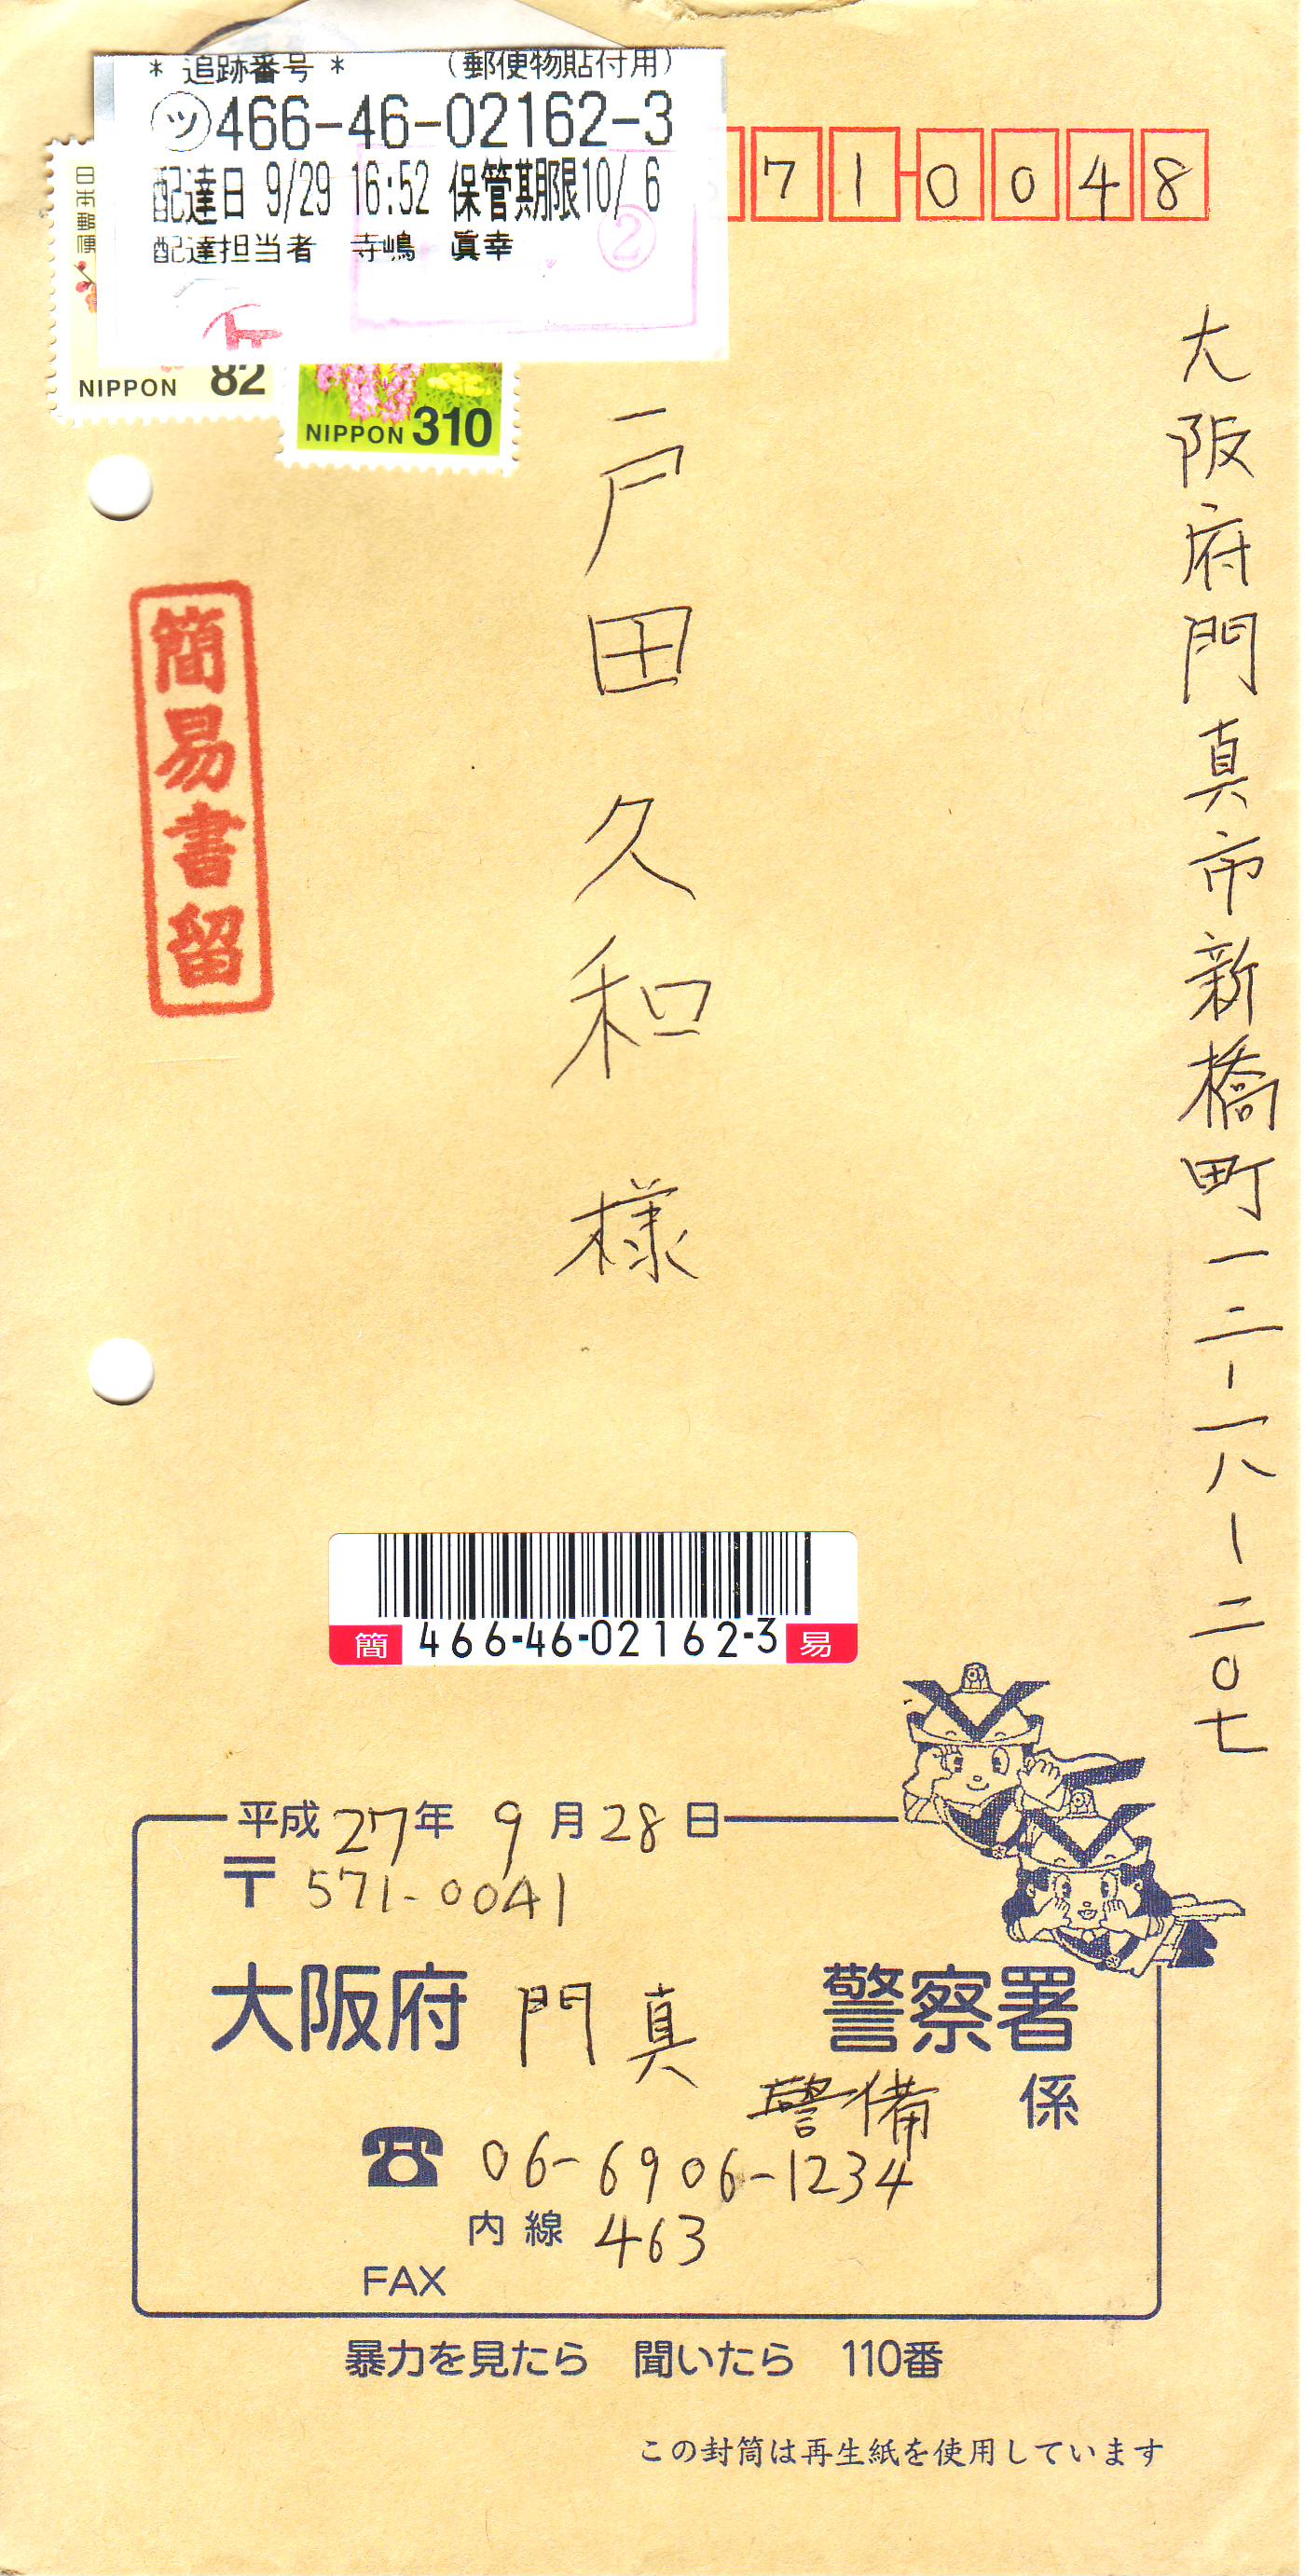 * 追跡番号 * (郵便物貼付用)
ッ466-46-02162-3
配達日 9/29 16:52 保管期限10/ 6
配達担当者 寺嶋 眞幸
②
日本郵便
NIPPON 82
NIPPON 310
71-0048
大阪府門真市新橋町一二-一八-二〇七
戸田久和様
簡易書留
簡 466-46-02162-3 易
平成27年9月28日
〒571-0041
大阪府 門真 警察署
警備 係
☎ 06-6906-1234
内線 463
FAX
暴力を見たら 聞いたら 110番
この封筒は再生紙を使用しています